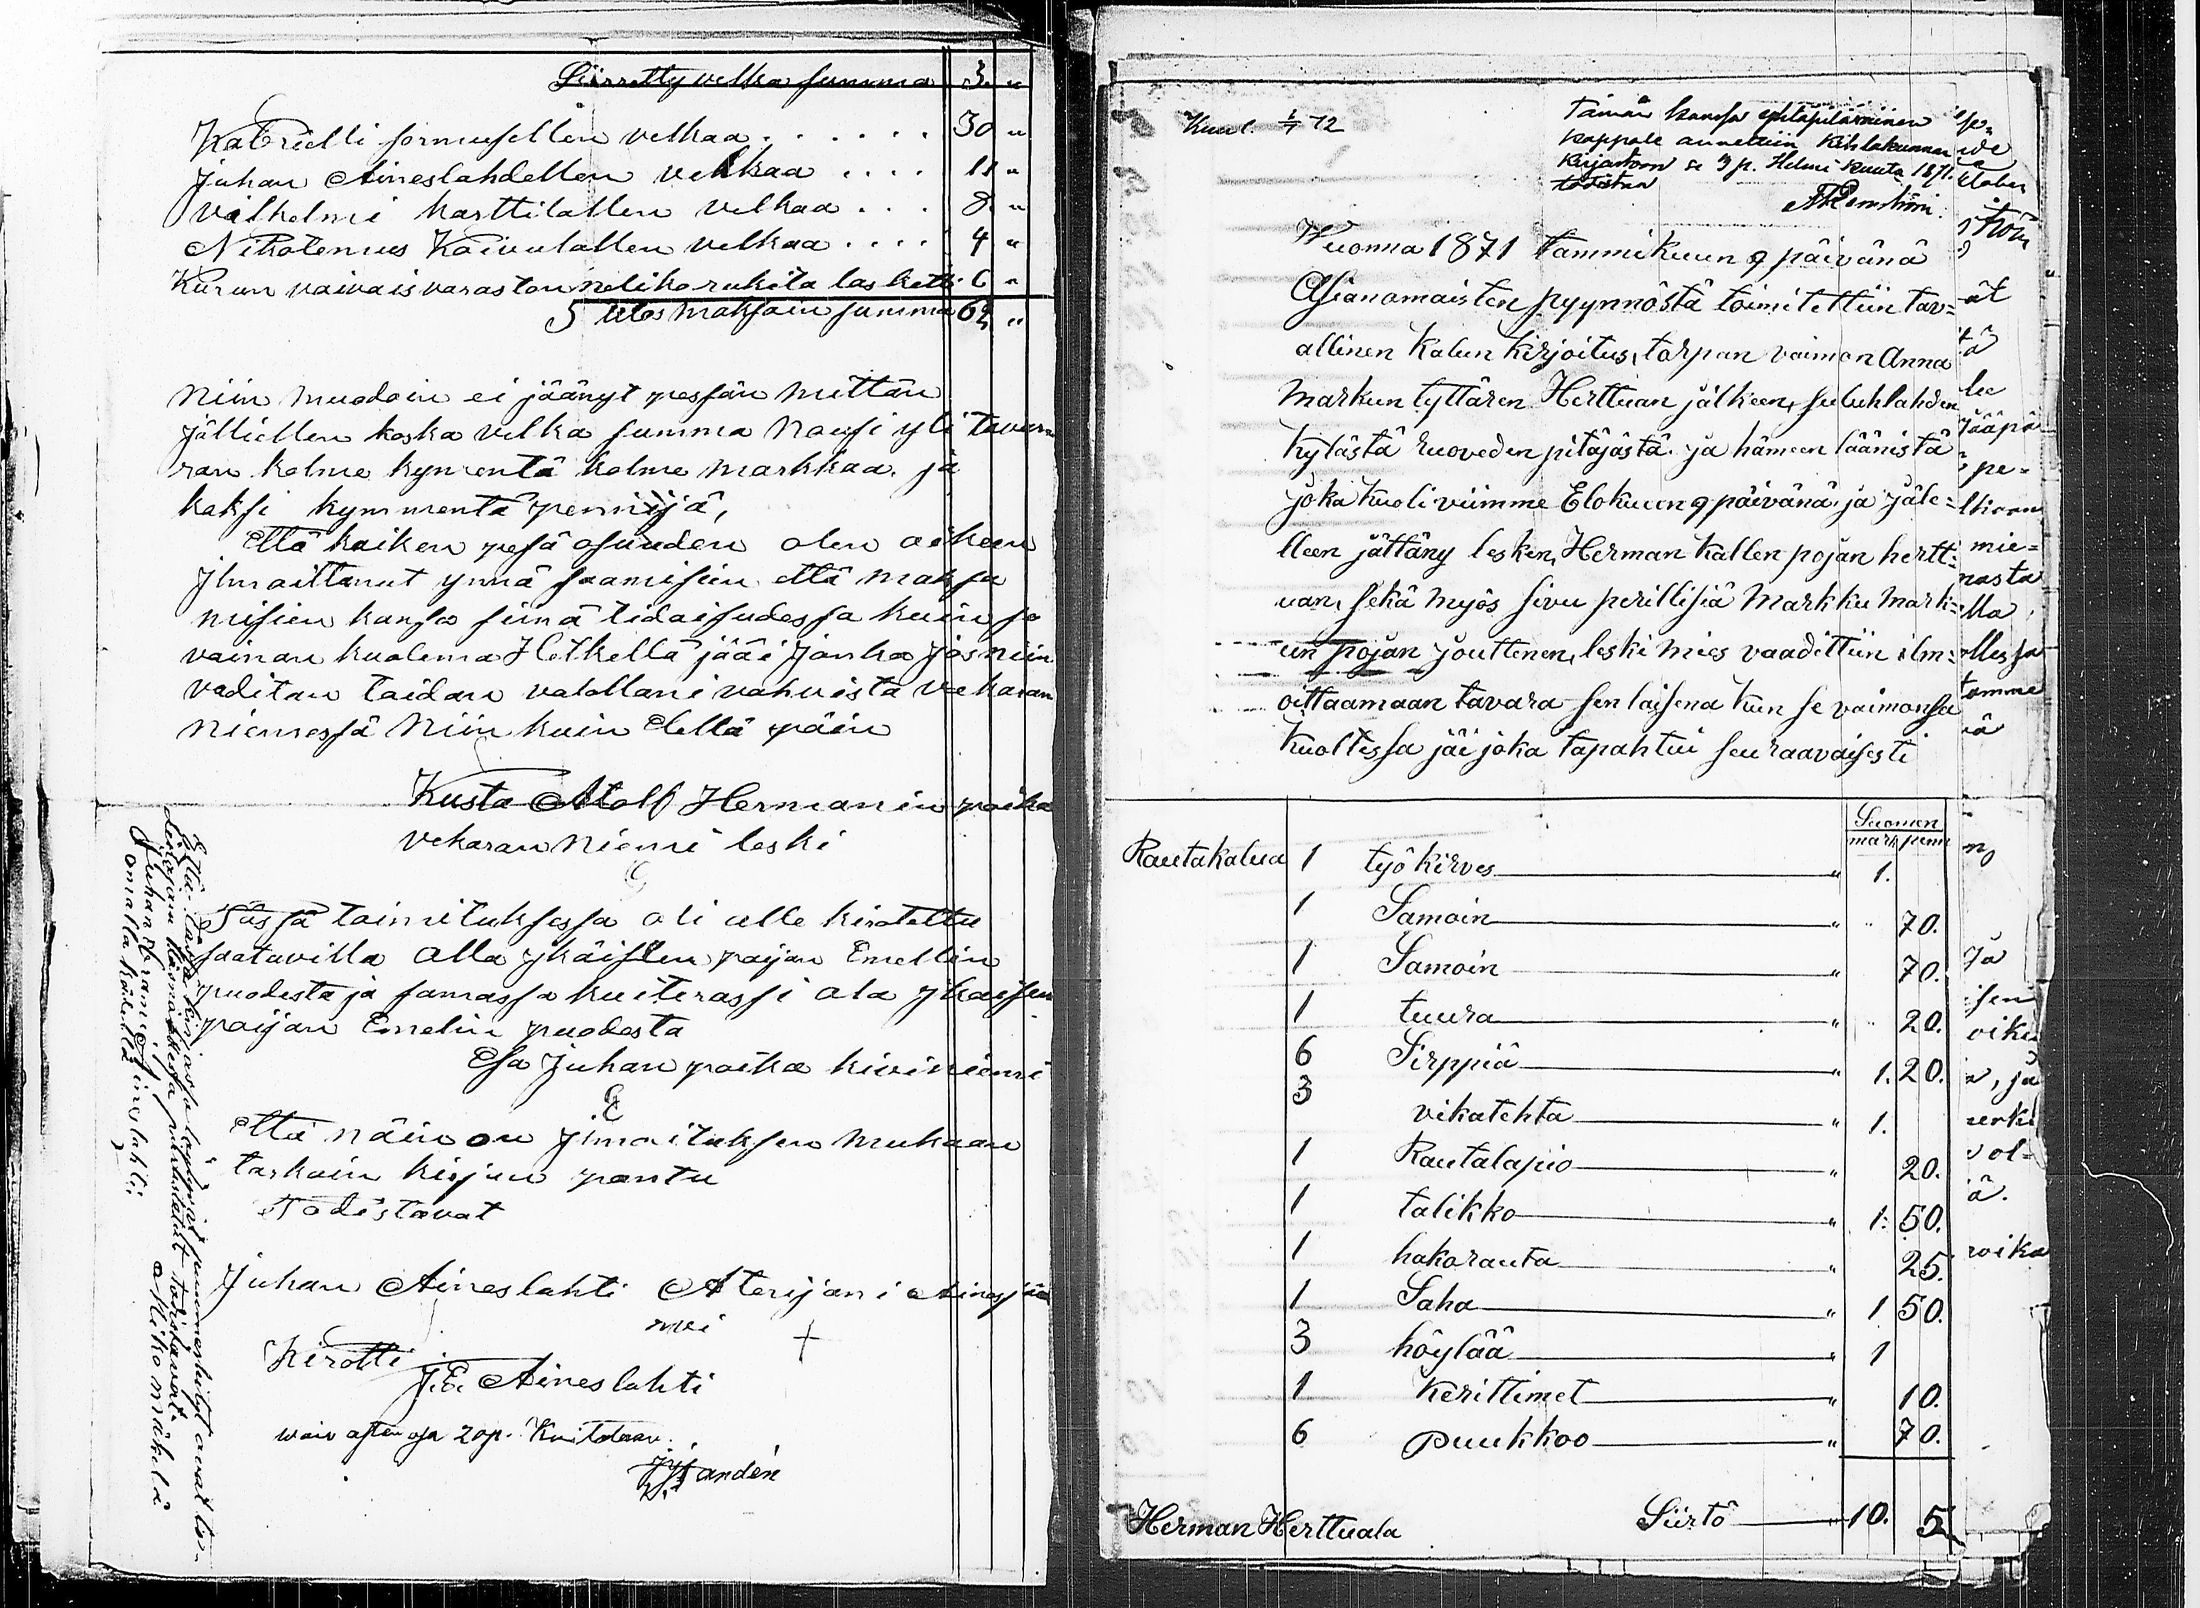 Siirretty velka summa 3. "
Kabrielli sormusellen velkaa . . . . . . 30 "
Juhan Aineslahdellen velkaa . . . . 11 "
Vilhelmi karttilallen velkaa . . . 8. "
Nikotemus Koivulallen velkaa . . . . 4 "
Kurun vaivaisvaraston nelikorukita lasketti 6 "
S Ulos maksoin summa 62 "
Niin muodoin ei jäänyt pessän mittän
jälliellen koska velka summa nousi yli tavaa
ran kolme kymentä kolme markkaa. ja
kaksi kymmentä penniijä,
Että kaiken pesä osuuden olen oikeen
Jlmoittanut ynnä saamisien että maksu
misien kansa siinä tidaisudessa kuin se
vainan kuolema Hetkellä jääi Jonka jos niin
vaditan taidan valallani vahvista vekaran
niemessä Niin kuin Eellä päin
Kusta Atolf Hermanin poika
vekaran Niemi leski
Tässä toimituksessa oli ulle kirotettu
saatavilla alla ykäisten paijan Emellin
puodesta ja samassa kuiterassi ala ykäisen
paijan Emelin puodesta
Esa Juhan poika kiviniemi
Että näin on Jlmoituksen mukaan
tarkoin kirjun pantu
Todistavat
Juhan Aineslahti Aterijani Ainesjär
mvi
Kirotti
J. E. Aineslahti
waiv asten osa 20 p. Kuitataan.
Että tässä kirjassa löytyvät
todistavat
Juhan Hermanni Aineslahti
omalla kädellä
Kiko mäkelä
Kuul. 1/7 72
Tämän kansa yhtäpitäwäinen
kappale annettiin Kihlakunnan
Kirjastoon se 9 p. Helmi kuuta 1871.
todistaa
Wuonna 1871 tammikuun 9 päivänä
Asianomaisten pyynnöstä toimitettiin tav=
allinen Kalun kirjoitus, torpan vaimon Anna
Markun tyttären Herttuan jälkeen, suluhlahden
kylästä Ruoveden pitäjästä ja hämeen läänistä
joka kuoli viimme Elokuun 9 päivänä ja jäle=
lleen jättäny lesken, Herman Kallen pojan hertt=
uan, sekä myös sivu perillisiä Markku Mark=
un pojan Jouttenen, leski mies vaadittiin ilm=
oittaamaan tavara senlaisena kun se vaimonsa
kuoltessa jäi joka tapahtui seuraavaisesti
Suomen
mark penn
Rautakalua 1 työkirves " 1.
1 Samoin " 70.
1 Samoin " 70.
1 tuura " 20.
6 Sirppiä " 1. 20.
3 vikatehta " 1.
1 Rautalapio " 20.
1 talikko " 1. 50.
1 hakorauta " 25.
1 Saha " 1 50.
3 höylää " 1
1 kerittimet " 10.
6 puukkoo " 70.
Herman Herttuala Siirtö " 10. 5